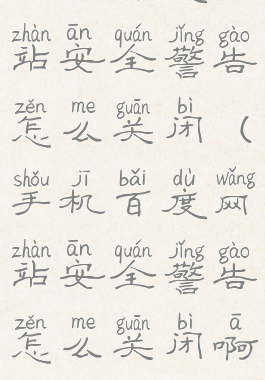 zhàn ān quán jǐng gào
站安全警告
zěn me guān bì
怎么关闭（
shǒu jī bǎi dù wǎng
手机百度网
zhàn ān quán jǐng gào
站安全警告
zěn me guān bì ā
怎么关闭啊